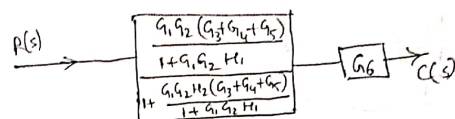 R(s)
G1 G2 (G3+G4+G5)
1+G1 G2 H1
1+ G1 G2 H2 (G3+G4+G5)
1+G1 G2 H1
G6
C(s)